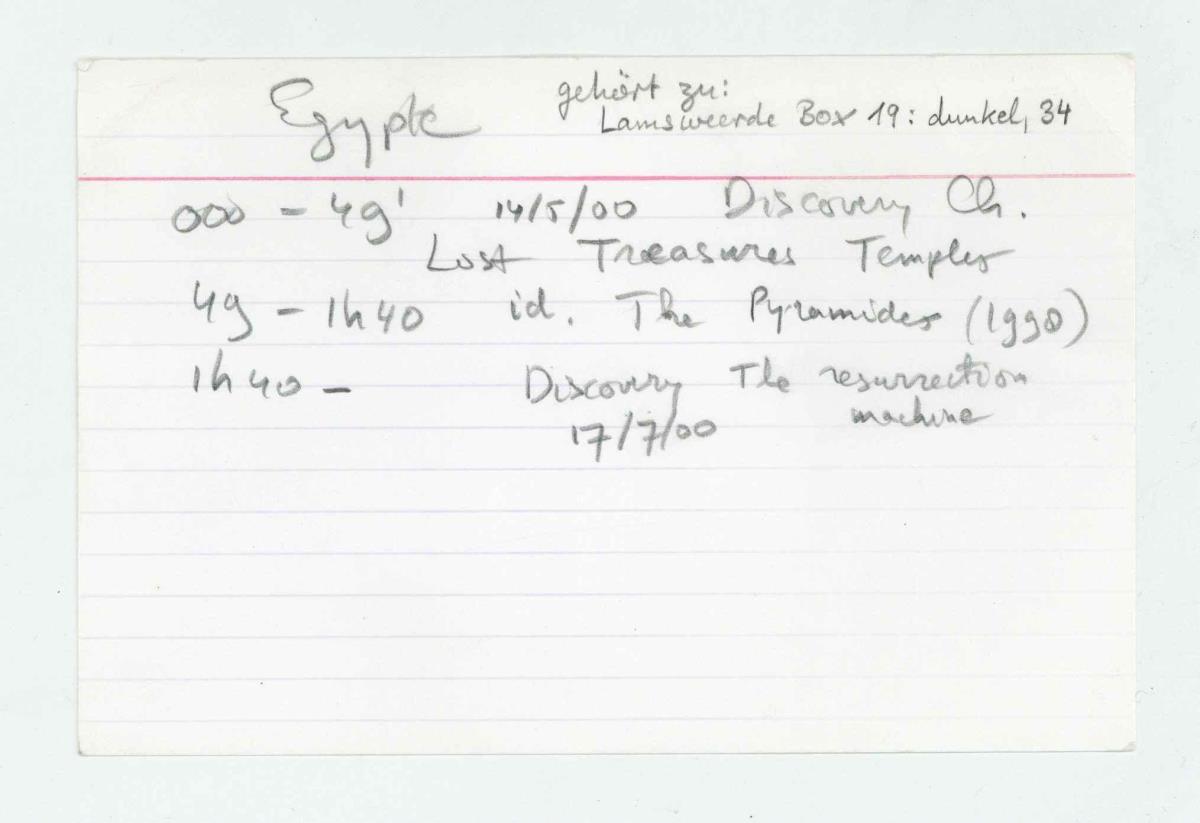 Egypte
gehört zu:
Lamsweerde Box 19: dunkel, 34
000 - 49' 14/5/00 Discovery Ch.
Lost Treasures Temples
49 - 1h40 id. The Pyramides (1998)
1h40 - Discovery The resurrection
machine
17/7/00